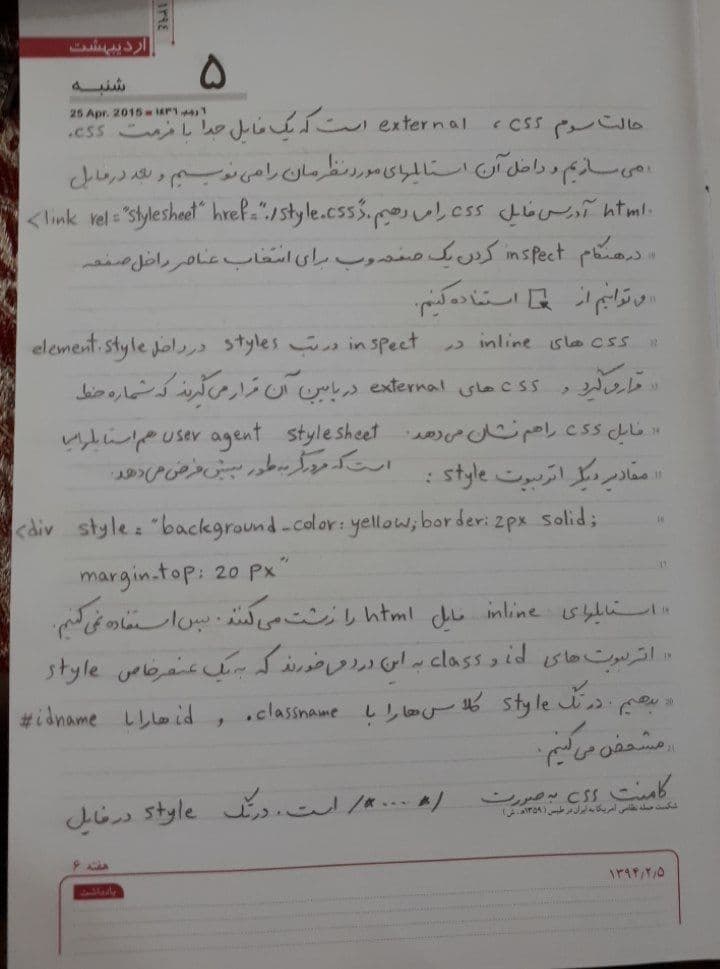 ۱۳۹۴
اردیبهشت
۵
شنبه
25 Apr. 2015 ■ ٦ رجب ١٤٣٦
حالت سوم css ، external است که یک فایل جدا با فرمت css.
می سازیم و داخل آن استایلهای مورد نظرمان را می نویسیم و بعد در فایل
html آدرس فایل css را می دهیم. <link rel="stylesheet" href="./style.css">
در هنگام inspect کردن یک صفحه وب برای انتخاب عناصر داخل صفحه
می توانیم از استفاده کنیم.
css های inline در inspect در تب styles در داخل element.style
قرار می گیرد و css های external در پایین آن قرار می گیرند که شماره خط
فایل css را هم نشان می دهد. user agent stylesheet هم استایلهایی
است که مرورگر به طور پیش فرض می دهد.
مقادیر دیگر اتریبیوت style :
<div style="background-color: yellow; border: 2px solid;
margin-top: 20 px"
استایلهای inline فایل html را زشت می کنند. پس استفاده نمی کنیم.
اتریبوت های id و class به این درد می خورند که به یک عنصر خاص style
بدهیم. در تگ style کلاس ها را با .classname و id ها را با #idname
مشخص می کنیم.
کامنت css به صورت /* .... */ است. در تگ style در فایل
شکست حمله نظامی آمریکا به ایران در طبس (۱۳۵۹ه‍.ش)
هفته ۶
۱۳۹۴/۲/۵
یادداشت